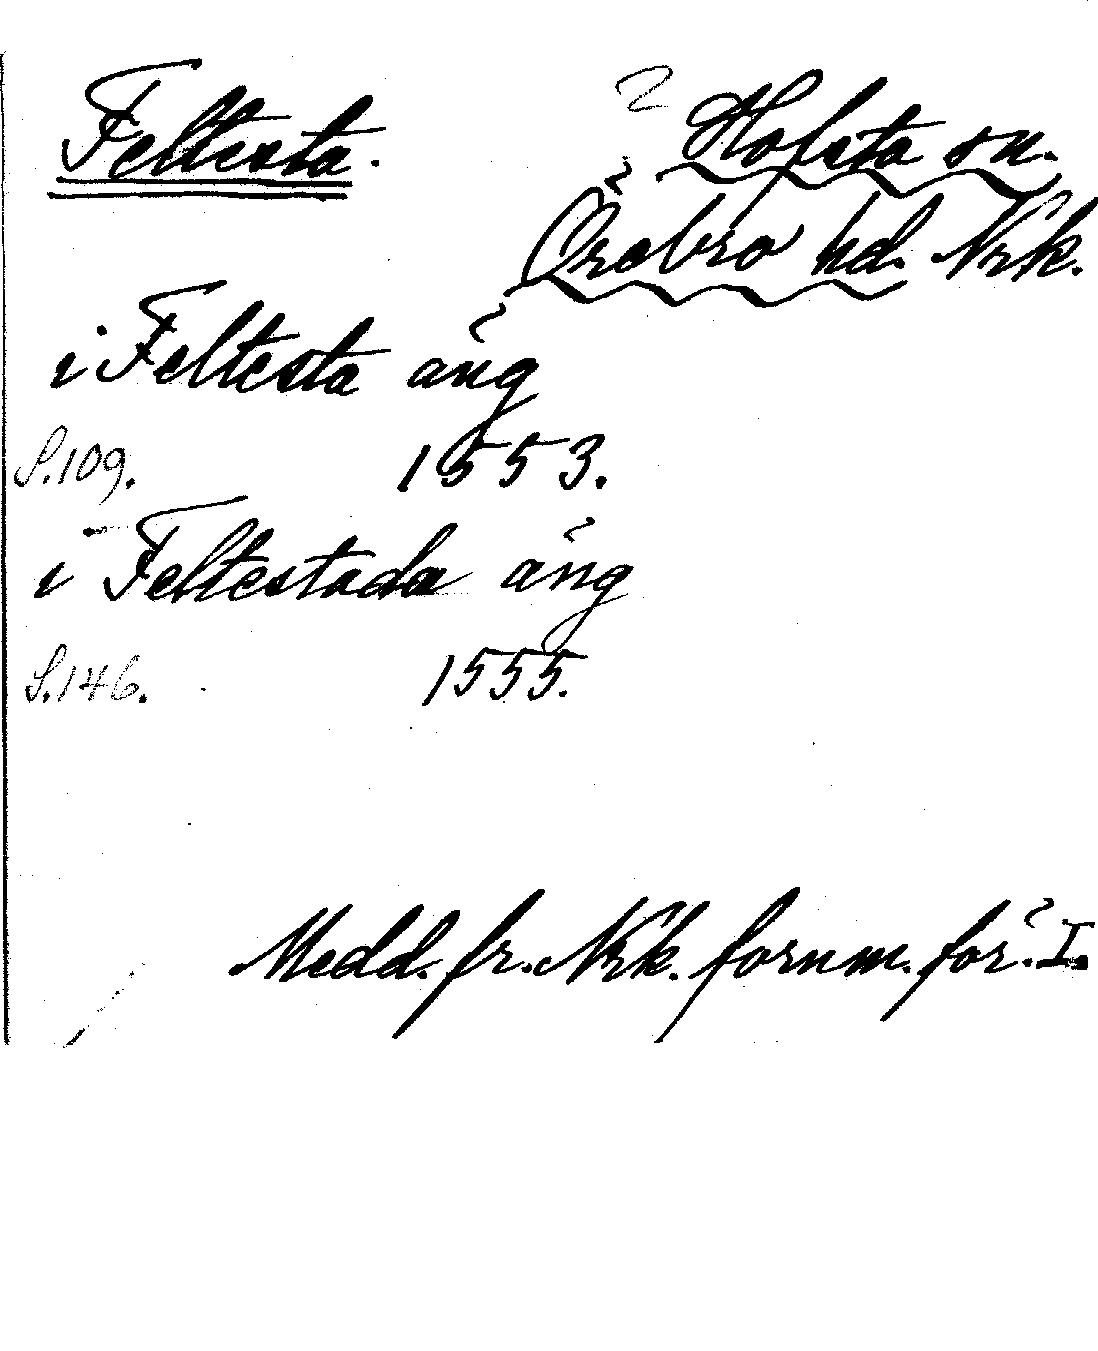 Feltesta. ? Hofsta sn.
Örebro hd. Nrk.
i Feltesta äng
S.109. 1553.
i Feltestada äng
S.146. 1555.
Medd. fr. Nrk. fornm. för. I.